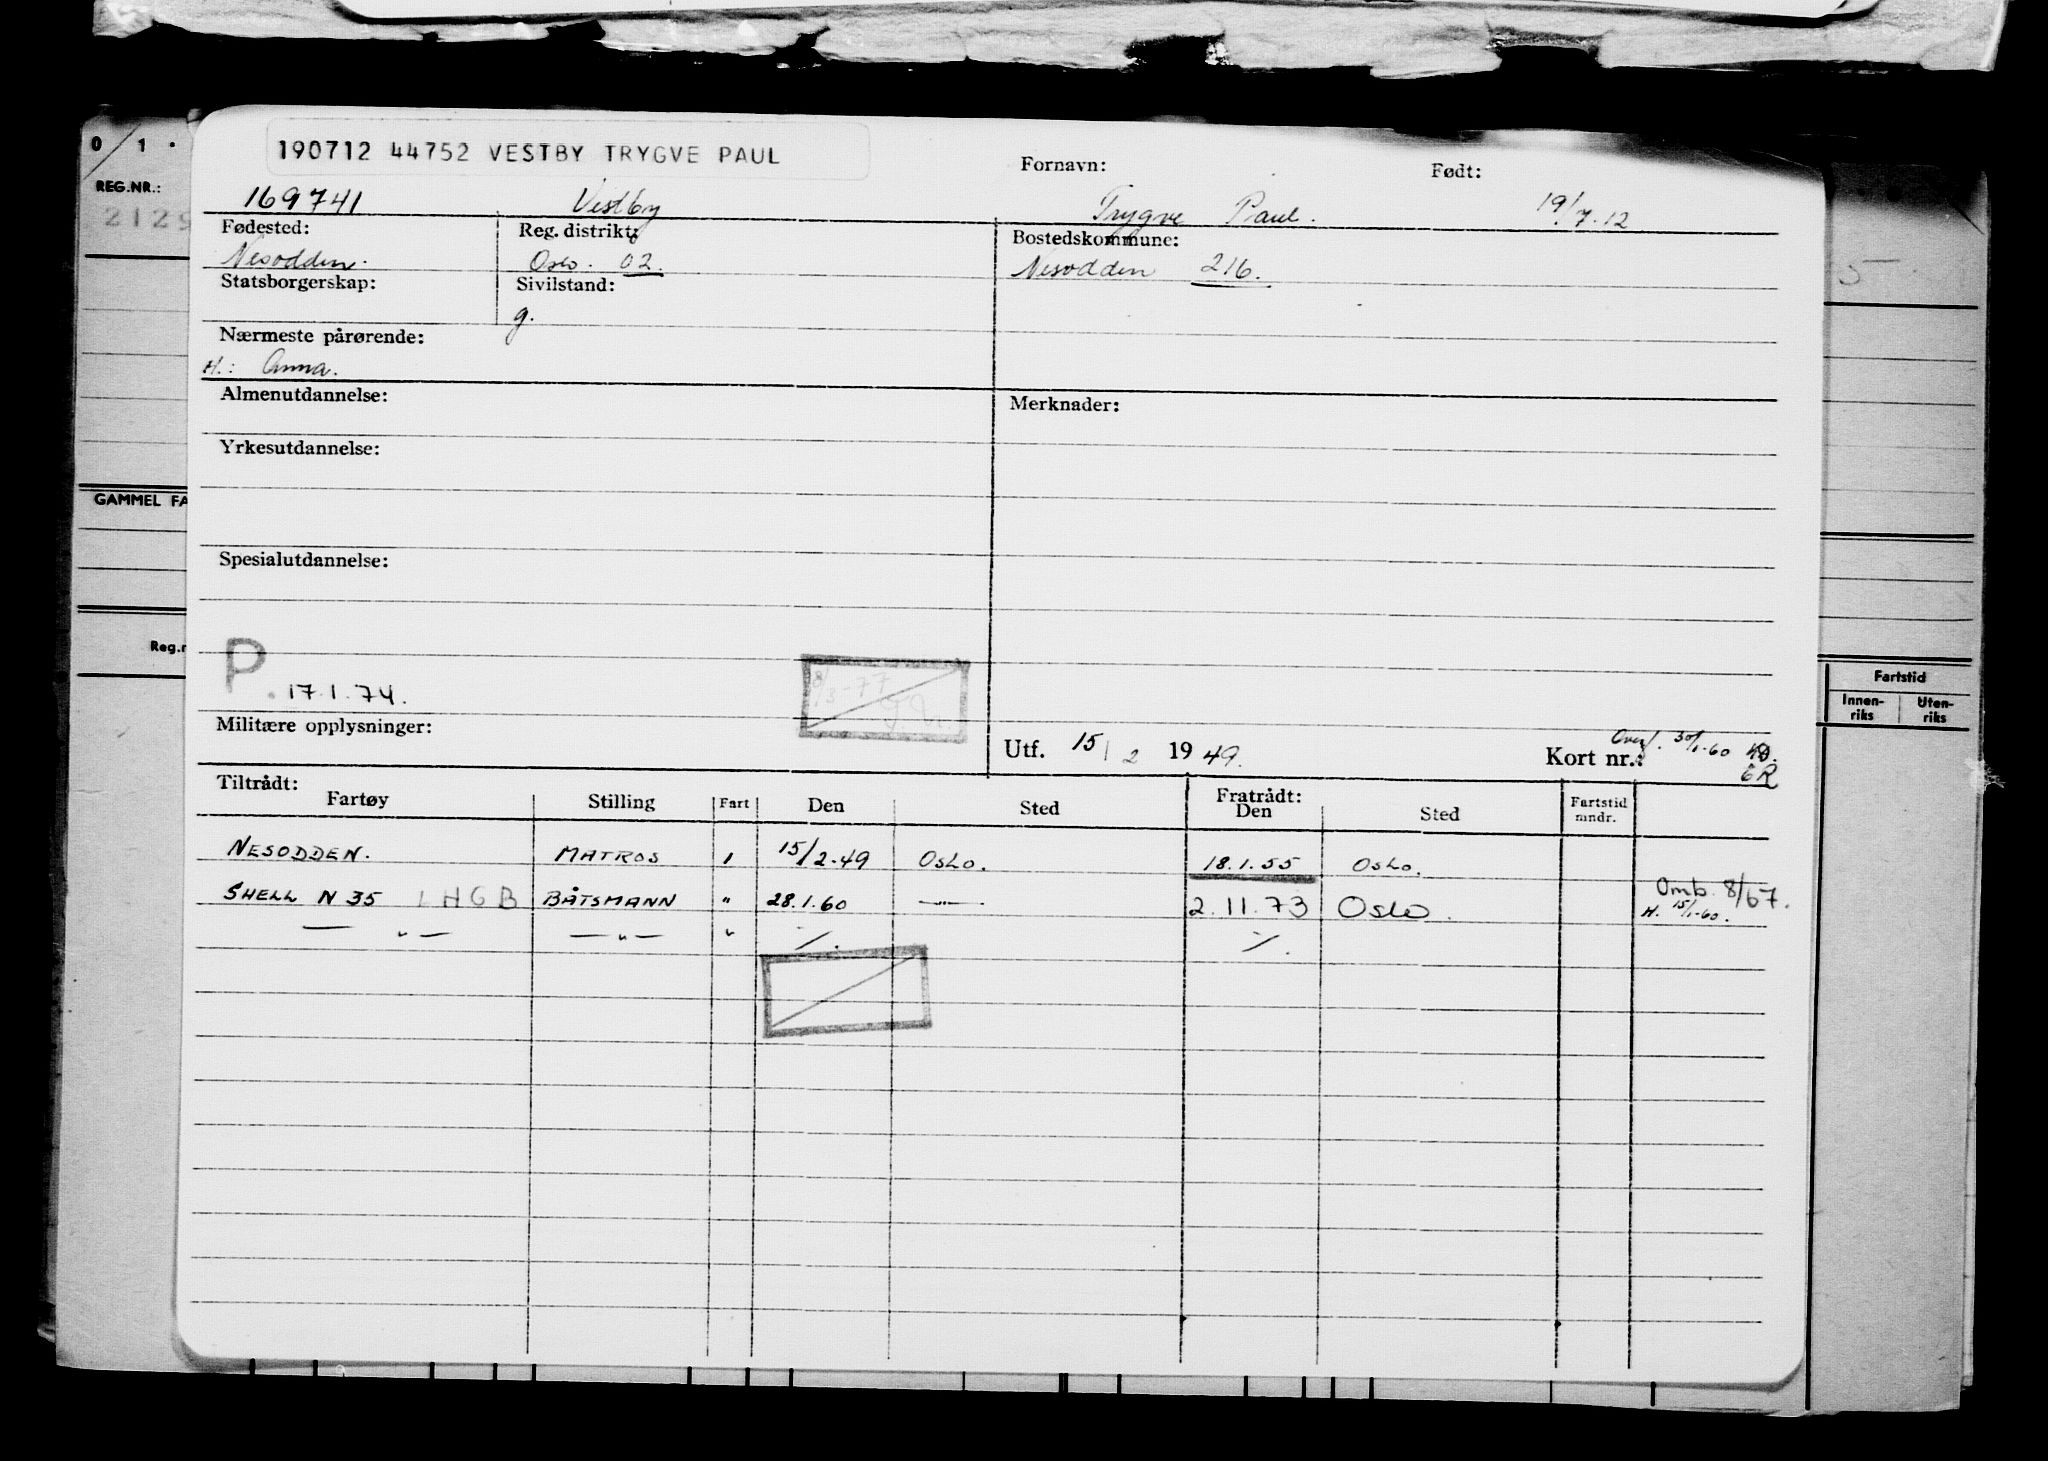 0/1.
REG.NR.:
2129
GAMMEL FA
Reg.n
5
Fartstid
Innen-riks Uten-riks
190712 44752 VESTBY TRYGVE PAUL
Fornavn: Født:
169741 Vestby Trygve Paul. 19/7.12
Fødested: Reg. distrikt: Bostedskommune:
Nesodden. Oslo. 02. Nesodden 216.
Statsborgerskap: Sivilstand:
g.
Nærmeste pårørende:
H.: Anna.
Almenutdannelse: Merknader:
Yrkesutdannelse:
Spesialutdannelse:
P. 17.1.74.
8/3-77
Militære opplysninger:
Utf. 15/2 1949. Kort nr.: Overf. 30/1-60
6R
Tiltrådt: Fratrådt:
Fartøy Stilling Fart Den Sted Den Sted Fartstid mndr.
NESODDEN. MATROS 1 15/2-49 OSLO. 18.1.55 OSLO.
SHELL N 35 LHGB BÅTSMANN " 28.1.60 —"— 2.11.73 Oslo. Omb. 8/67.
H. 15/1-60.
— " — — " — " ./. ./.